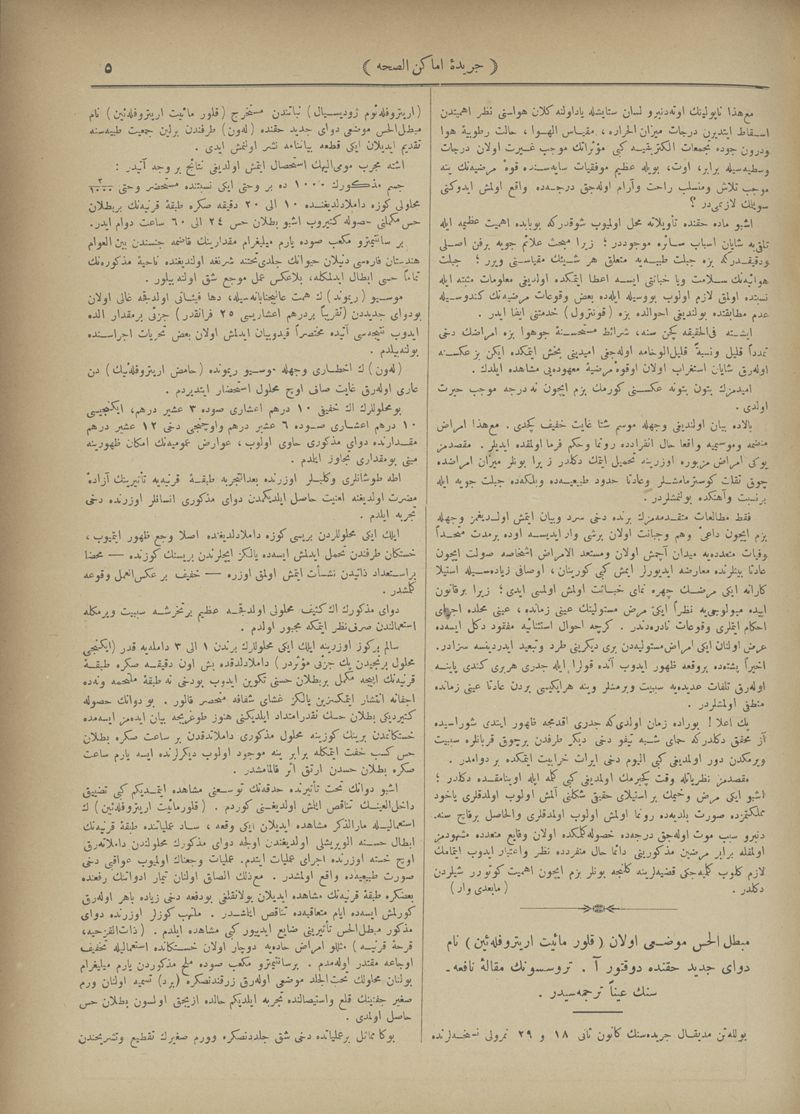 ﴿ جريدۀ اماكن الصحه ﴾
٥
مع‌هذا ناپولينك اوته‌دنبرو لسان ستايشله ياداولنه كلان هواسنى نظر اهميتدن
اسقاط ايتديرن درجات ميزان الحراره ، مقياس الهوا ، حالت رطوبية هوا
ودرون جوده تجمعات الكتريقيه كبى مؤثراتك موجب غيرت اولان درجات
وسطيه‌سيله برابر، اوت، بويله عظيم موفقيات سايه‌سنده قوۀ مرضيه‌نك ينه
موجب تلاش ومنسلب راحت وآرام اوله‌جق درجه‌ده واقع اولمش ايدوكنى
سويلمك لازمميدر ؟
اشبو ماده حقنده تأويلاته محل اولميوب شوقدركه بوبابده اهميت عظيمه ايله
تلقى‌يه شايان اسباب سائره موجوددر ؛ زيرا مبحث علائم جويه برفن اصلى
ودقيقدركه بزه جبلت طبيعيه متعلق هر شيئك مقياسنى ويرر ؛ جبلت
هوائيه‌نك سلامت ويا خباثتى ايسه اعطا ايتمكده اولدينى معلومات مثبته ايله
نسبتده اولمق لازم اولوب بووسيله ايله‌ده بعض وقوعات مرضيه‌نك كندوسيله
عدم مطابقتده بولنديغى احوالده بزه ( قونترول ) خدمتنى ايفا ايدر .
ايشته فى‌الحقيقه كچن سنه، شرائط مستحسنۀ جوهوا بزه امراضك دخى
عدداً قليل ونسبةً قليل‌الوخامه اوله‌جغى اميدينى بخش ايتمكده ايكن بر عكسنه
اوله‌رق شايان استغراب اولان اوقوۀ مرضيۀ معهوده‌يى مشاهده ايلدك .
اميدمزك بتون بتونه عكسنى كورمك بزم ايچون نه‌درجه موجب حيرت
اولدى .
بالاده بيان اولنديغى وجهله موسم شتا غايت خفيف كچدى. مع‌هذا امراض
منضمه وموسميه واقعا حال انفرادده رونما وحكم فرما اولمقده ايديلر. مقصدمز
يوكى امراض مزبوره اوزرينه تحميل ايتمك دكلدر زيرا بونلر ميزان امراضده
چوق ثقلت كوسترمامشلر وعادتا حدود طبيعيه‌ده وبلكه‌ده جبلت جويه ايله
برنسبت وآهنكده بولنمشلردر .
فقط مطالعات متقدمه‌مزك برنده دخى سرد وبيان ايتمش اولديغمز وجهله
بزم ايچون داعئ وهم وجبانت اولان برشى وار ايديسه اوده برمدت متحداً
وفيات متعدده‌يه ميدان آچمش اولان ومستعد الامراض اشخاصه صولت ايچون
عادتا بيننرنده معارضه ايديورلر ايمش كبى كورينان، اوصافى زياده‌سيله استيلا
كارانه ايكى مرضك چهره نماى خباثت اولمش اولمسى ايدى؛ زيرا برقانون
اپيده‌ ميولوجى‌يه نظراً ايكى مرض مستوليتك عينى زمانده، عينى محلده اجراى
احكام ايتملرى وقوعات نادره‌دندر . كرچه احوال استثنائيه مفقود دكل ايسه‌ده
عرض اولنان ايكى امراض مستوليه‌دن برى ديكرينى طرد وتبعيد ايدردينسه سزادر.
اخيراً پشته‌ده بروقعه ظهور ايدوب آنده قولرا ايله جدرى هربرى كندى پاينه
اوله‌رق تلفات عديده‌يه سببيت ويرمشلر وينه هرايكيسى بردن عادتا عينى زمانده
منطفى اولمشلردر .
پك اعلا ! بوراده زمان اولدى‌كه جدرى اقدمجه ظهور ايتدى شوراسيده
آز محقق دكلدركه حماى شبه تيفو دخى ديكر طرفدن برچوق قربانلره سببيت
ويرمكدن دور اولمدينى كبى اليوم دخى ايراث خرابيت ايتمكده بر دوامدر .
مقصدمز نظرياتله وقت كچيرمك اولمدينى كبى كلمه ايله اوينامقده دكلدر ؛
اشبو ايكى مرض وخيمك بر استيلاى حقيقى شكلنى آلمش اولوب اولمدقلرى ياخود
مملكتمزده صورت بلديه‌ده رونما اولمش اولوب اولمدقلرى والحاصل برقاچ سنه.
دنبرو سبب موت اوله‌جق درجه‌ده حصوله‌كلمكده اولان وقايع متعدده مشهودمز
اولمقله برابر مرضين مذكورينى دائما حال منفردده نظر واعتبار ايدوب ايتمامك
لازم كلوب كلميه‌جكى قضيه‌لرينه كلنجه بونلر بزم ايچون اهميت كوتورر شيلردن
دكلدر . ( مابعدى وار )
مبطل الحس موضعى اولان ( قلور مائيت اريتروفله‌ئين ) نام
دواى جديد حقنده دوقتور آ . تروسسونك مقالۀ نافعه‌ـ
سنك عيناً ترجمه‌سيدر .
بوللتن مديقال جريده‌سنك كانون ثانى ١٨ و ٢٩ نمرولى نسخه‌لرنده
( اريتروفله‌ئوم ژوديسيال ) نباتندن مستخرج ( قلور مائيت اريتروفله‌ئين ) نام
مبطل الحس موضعى دواى جديد حقنده ( له‌ون ) طرفندن برلين جمعيت طبيه‌سنه
تقديم ايديلان ايكى قطعه بياننامه نشر اولنمش ايدى .
اشته مجرب مومى‌اليهك استحصال ايتمش اولدينى نتائج بر وجه آتيدر :
جسم مذكورك ١٠٠٠ ده بر وحتى ايكى نسبتنده مستحضر وحتى
محلولى كوزه داملاتلديغنده ١٠ الى ٢٠ دقيقه صكره طبقۀ قرنيه‌نك بربطلان
حس مكملنى حصوله كتيروب اشبو بطلان حس ٢٤ الى ٦٠ ساعت دوام ايدر.
بر سانتيمترو مكعب صوده يارم ميليغرام مقدارينك قاضمه جنسندن بين العوام
هندستان فارسى دنيلان حيوانك جلدى‌تحتنه شرنغه اولنديغنده ناحيۀ مذكوره‌نك
تماماً حسى ابطال ايدلمكله، بلاعكس عمل موجع شق اولنه بيلور .
موسيو ( ريموند ) ك همت عاليجنابانه‌سيله، دها فيئاتى اولدقجه غالى اولان
بودواى جديددن (تقريباً بردرهم اعشاريسى ٢٥ فرانقدر) جزئى برمقدار الده
ايدوب نتيجه‌سى آتيده مختصراً قيدوبيان ايدلمش اولان بعض تحريات اجراسنده
بولنه‌بيلدم .
( له‌ون ) ك اخطارى وجهله موسيو ريمونده ( حامض اريتروفله‌ئيك ) دن
عارى اوله‌رق غايت صاف اوچ محلول استحضار ايتديردم .
بو محلوللرك اك خفيفى ١٠ درهم اعشارى صوده ٣ عشير درهم، ايكنجيسى
١٠ درهم اعشارى صوده ٦ عشير درهم واوچنجى دخى ١٢ عشير درهم
مقدارنده دواى مذكورى حاوى اولوب، عوارض عموميه‌نك امكان ظهورينه
مبنى بومقدارى تجاوز ايلدم .
اطه طوشانلرى وكلبلر اوزرنده بعدالتجربه طبقۀ قرنيه‌يه تأثيرينك آزاده
مضرت اولديغنه امنيت حاصل ايلديكمدن دواى مذكورى انسانلر اوزرنده دخى
تجربه ايلدم .
ايلك ايكى محلوللردن بريسى كوزه داملاتلديغنده اصلا وجع ظهور ايتميوب ،
خستكان طرفندن تحمل ايدلمش ايسه‌ده يالكز ايچلرندن بريسنك كوزنده — محضا
براستعداد ذاتيدن نشأت ايتمش اولمق اوزره — خفيف بر عكس‌العمل وقوعه
كلمشدر .
دواى مذكورك اك كثيف محلولى اولدقجه عظيم برتخرشه سببيت ويرمكله
استعمالندن صرف نظر ايتمكه مجبور اولدم .
سالم بركوز اوزرينه ايلك ايكى محلوللرك برندن ١ الى ٣ داملايه قدر (ايكنجى
محلول برنجيدن پك جزئى مؤثردر ) داملاتلدقده بش اون دقيقه صكره طبقۀ
قرنيه‌نك ايجه مكمل بربطلان حسنى تكوين ايدوب بودخى نه طبقۀ ملتحمه ونه‌ده
اجفانه انتشار ايتمكسزين يالكز غشاى شفافه منحصر قالور . بو دوانك حصوله
كتيرديكى بطلان حسك نقدر امتداد ايلديكنى هنوز طوغريجه بيان ايده‌مز ايسه‌مده
خستكانمدن برينك كوزينه محلول مذكورى داملاتدقدن بر ساعت صكره بطلان
حس كسب خفت ايتمكله برابر ينه موجود اولوب ديكرلرنده ايسه يارم ساعت
صكره بطلان حسدن ارتق اثر قالمامشدر .
اشبو دوانك تحت تأثيرنده حدقه‌نك توسعنى مشاهده ايتمديكم كبى تضييق
داخل‌العينك تناقص ايتمش اولديغنى كوردم . ( قلورمائيت اريتروفله‌ئين ) ك
استعماليله مارالذكر مشاهده ايديلان ايكى وقعه ، ساد عملياتنده طبقۀ قرنيه‌نك
ابطال حسنه الويريشلى اولديغندن اولجه دواى مذكورك محلولندن داملاته‌رق
اوچ خسته اوزرنده اجراى عمليات ايتدم. عمليات وجعناك اولميوب عواقبى دخى
صورت طبيعيه‌ده واقع اولمشدر . مع‌ذلك الصاق اولنان تيمار ادواتنك رفعنده
بعضكره طبقۀ قرنيه‌نك مشاهده ايديلان بولانقلغى بودفعه دخى زياده باهر اوله‌رق
كورلمش ايسه‌ده ايام متعاقبه‌ده تناقص ايتمشدر . ملتهب كوزلر اوزرنده دواى
مذكور مبطل الحس تأثيرينى ضايع ايدييور كبى مشاهده ايلدم . (ذات‌القزحيه،
قرحۀ قرنيه ) مثللو امراض حاده‌يه دوچار اولان خستكانده استعماليله تخفيف
اوجاعه مقتدر اوله‌مدم . برسانتيمترو مكعب صوده ملح مذكوردن يارم ميليغرام
بولنان محلولك تحت‌الجلد موضعى اوله‌رق زرقندنصكره ( برد ) تسميه اولنان ورم
صغير جفنينك قلع واستيصالنده تجربه ايلديكم حالده ازيجق اولسون بطلان حس
حاصل اولمدى .
بوكا مماثل برعملياتده دخى شق جلددنصكره وورم صغيرك تقطيع وتشريحندن